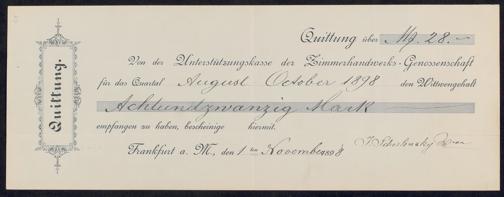 Quittung.
Quittung über M. 28.—
Von der Unterstützungskasse der Zimmerhandwerks-Genossenschaft
für das Quartal August October 1898 den Wittwengehalt
Achtundzwanzig Mark
empfangen zu haben, bescheinige hiermit.
Frankfurt a. M., den 1 ten November 1898